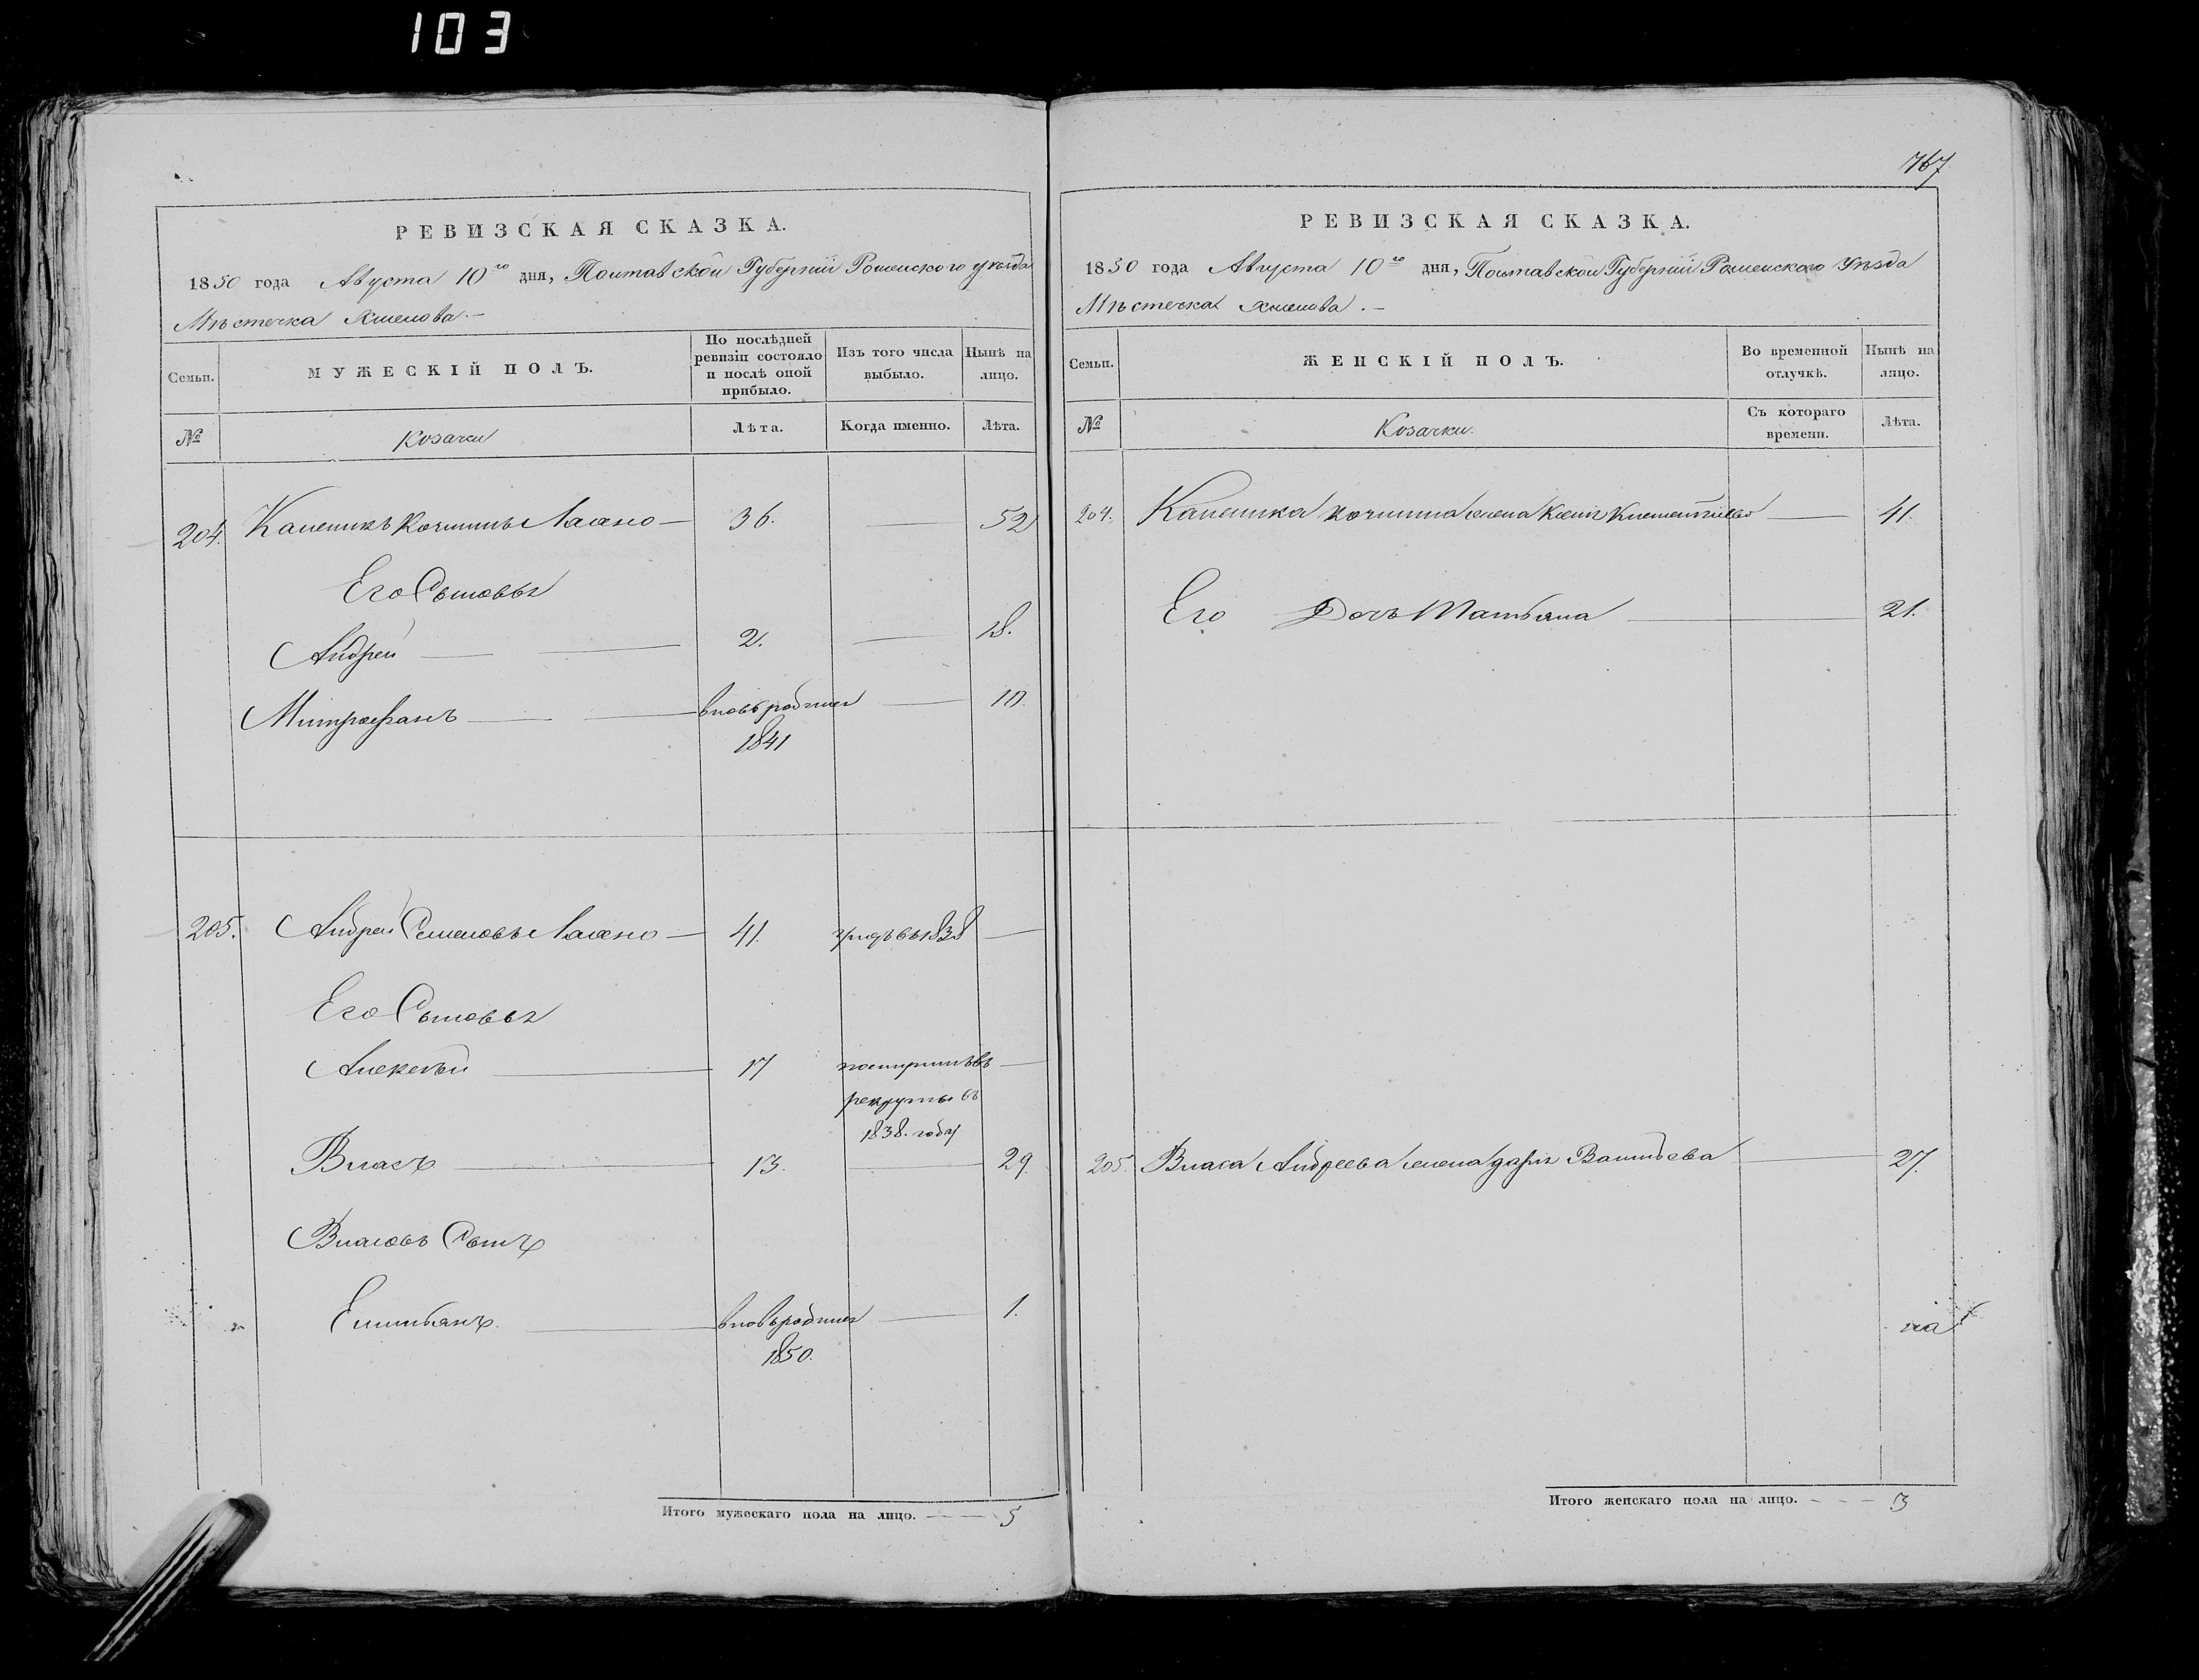 103
РЕВИЗСКАЯ СКАЗКА.
1850 года Августа 10го дня, Полтавской Губерніи Роменского уѣзда
Мѣстечка Хмелова.
Семьи.
МУЖЕСКІЙ ПОЛЪ.
По послѣдней ревизіи состояло и послѣ оной прибыло.
Изъ того числа выбыло.
Нынѣ на лицо.
№
Козаки
Лѣта.
Когда именно.
Лѣта.
204. Калиникъ 36. 52
Его Сыновья
Андрей 2. 18.
Митрофанъ вновьродился 10.
1841
205. Андрей Семеновъ 41. въ 1838
Его Сыновья
Алексѣй 17 въ
рекруты въ
1838. году
Власъ 13. 29
Власовъ Сынъ
Емельянъ. вновьродился 1.
1850.
Итого мужескаго пола на лицо. 5
767
РЕВИЗСКАЯ СКАЗКА.
1850 года Августа 10го дня, Полтавской Губерніи Роменского Уѣзда
Мѣстечка Хмелова.
Семьи.
ЖЕНСКІЙ ПОЛЪ.
Во временной отлучкѣ.
Нынѣ на лицо.
№
Козачки.
Съ котораго времени.
Лѣта.
204. Калиника жена Ксенія Климентіева 41.
Его Дочь Татьяна 21.
205. Власа Андреева жена Дарія 27.
Итого женскаго пола на лицо. 3